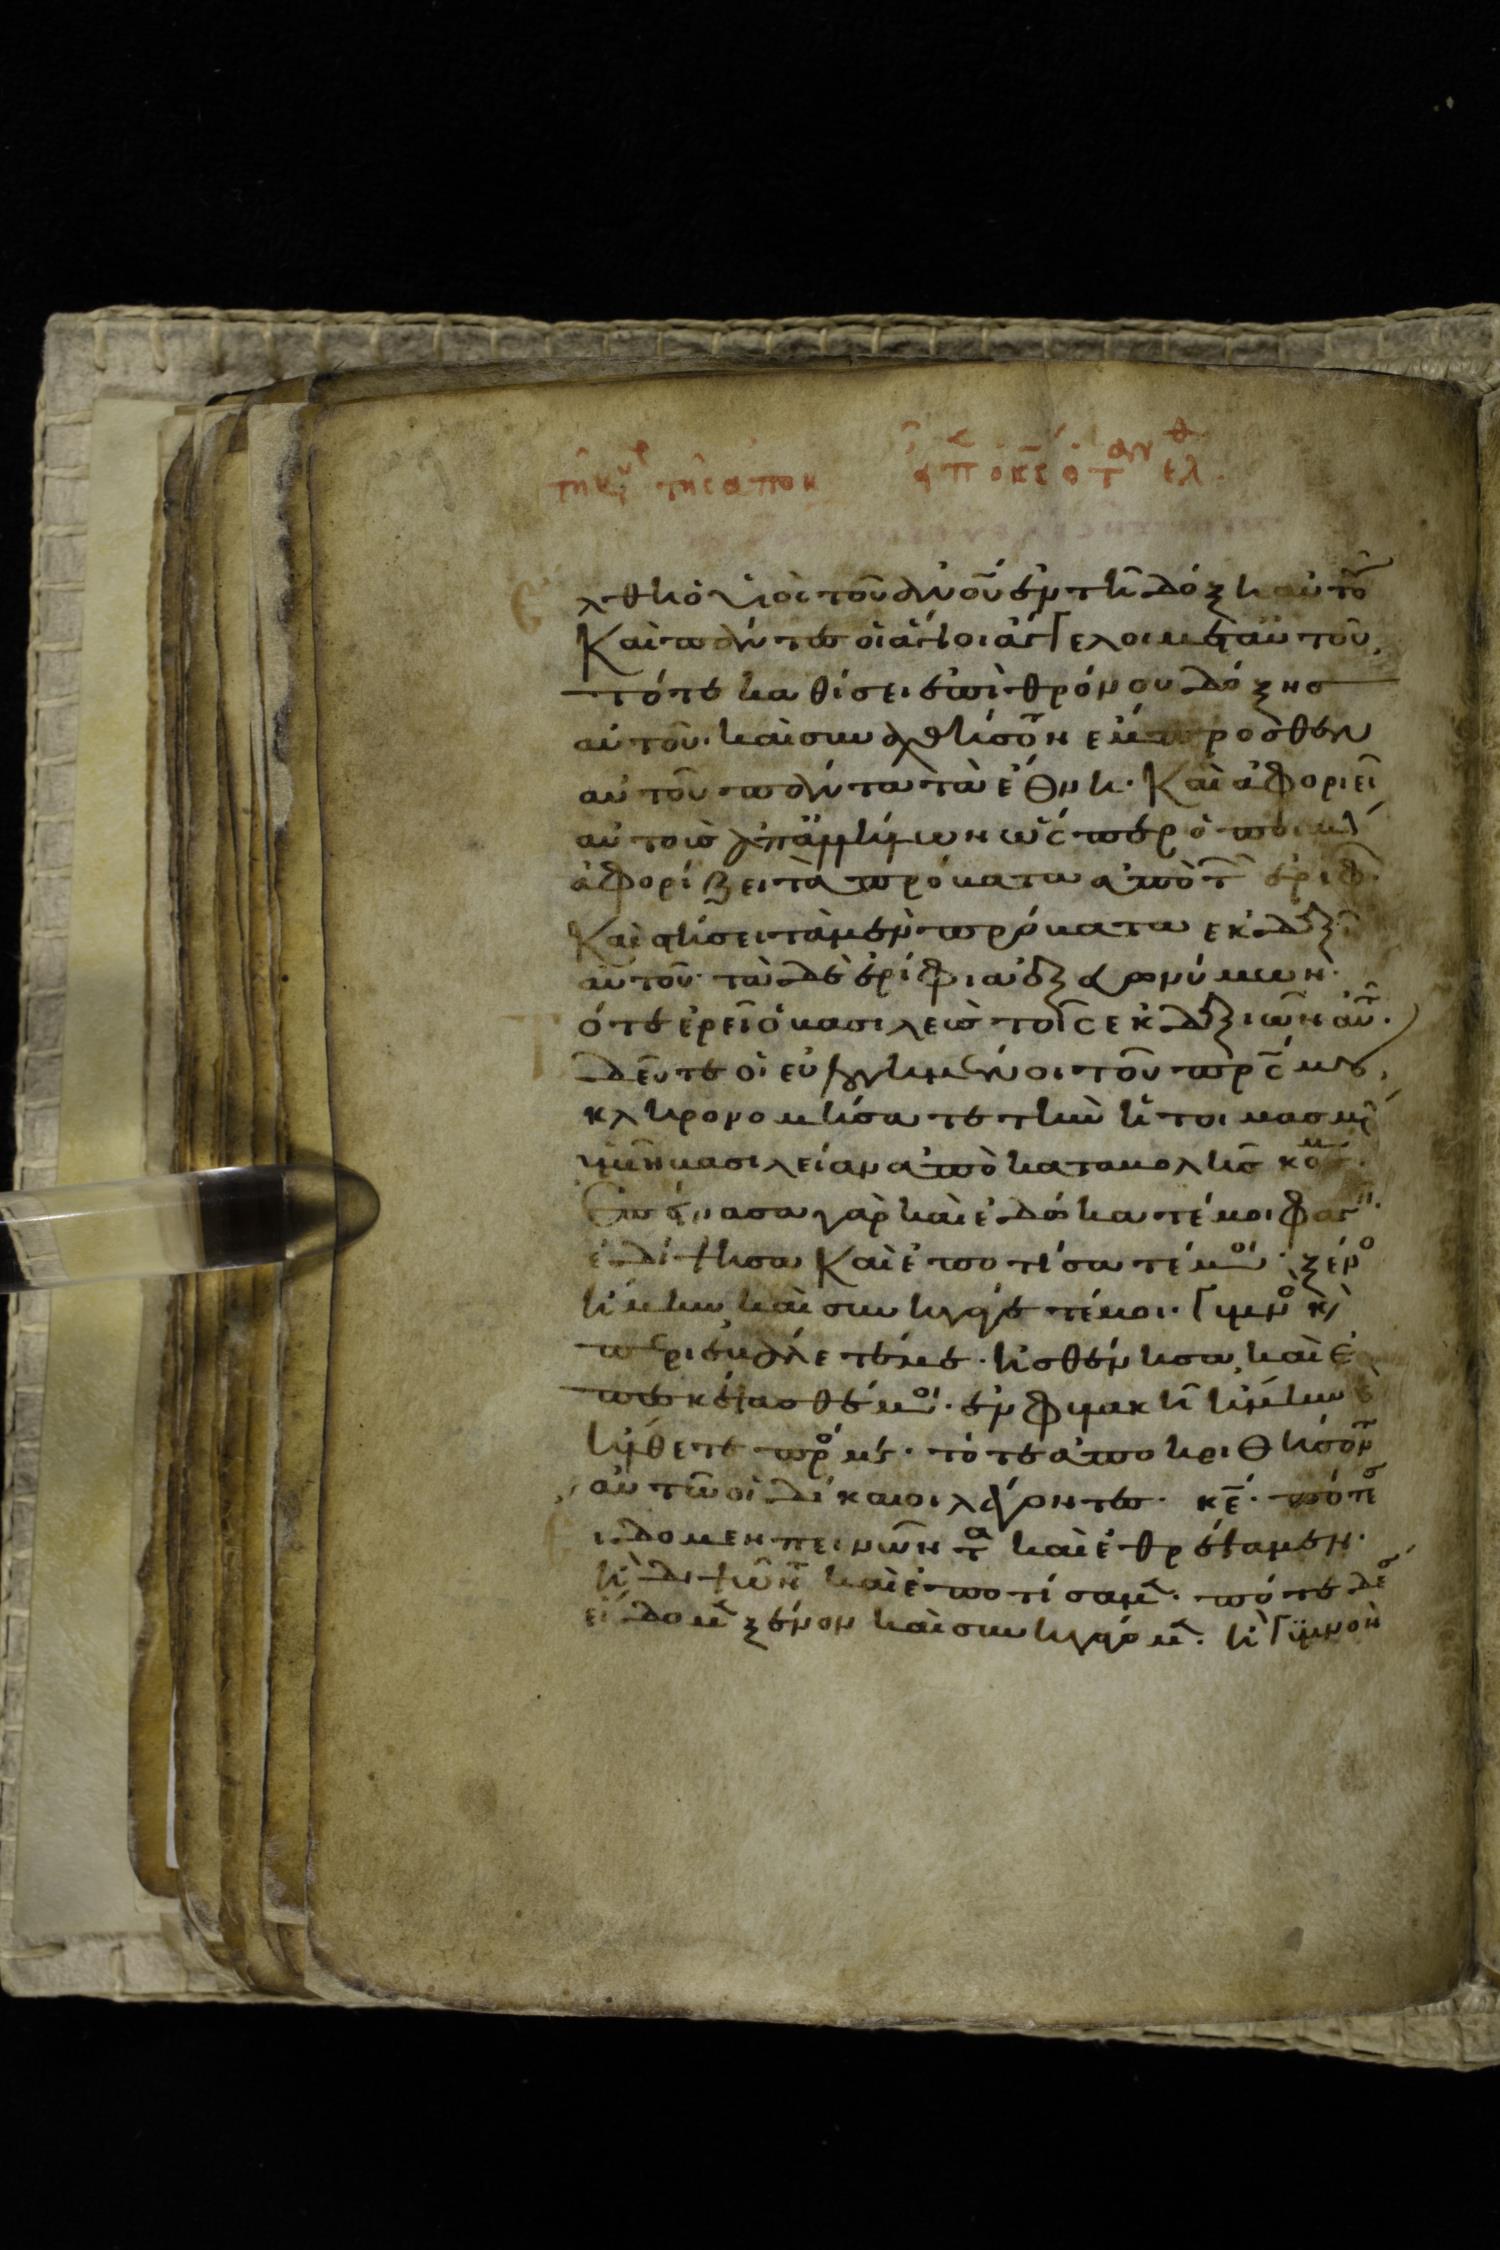 τη κυρ της αποκ ειπ ο κς οτ αν ελ
λθη ὁ υἱὸς τοῦ ἀνου ἐν τῆ δόξη αὐτοῦ
Καὶ πάντες οἱ ἅγιοι ἄγγελοι μετ αὐτοῦ,
τότε καθίσει ἐπὶ θρόνου δόξης
αὐτοῦ· καὶ συναχθήσον ἔμπροσθεν
αὐτοῦ πάντα τὰ ἔθνη· Καὶ ἀφοριεῖ
αὐτοὺς ἀπ ἀλλήλων ὥσπερ ὁ ποιμ
ἀφορίζει τὰ πρόβατα ἀπὸ τ ἐριφ
Καὶ στήσει τὰ μὲν πρόβατα ἐκ δεξι
αὐτοῦ· τὰ δὲ ἐρίφια ἐξ εὐωνύμων·
ότε ἐρεῖ ὁ βασιλεὺς τοῖς ἐκ δεξιῶν αὐτ·
δεῦτε οἱ εὐλογημένοι τοῦ πρς μου,
κληρονομήσατε τὴν ἡτοιμασμ
ὑμῖν βασιλείαν ἀπὸ καταβολῆς κόσμ·
Ἐπείνασα γὰρ καὶ ἐδώκατέ μοι φαγ·
ἐδίψησα Καὶ ἐποτίσατέ με· ξένο
ἤμην καὶ συνηγάγετέ με· γυμνὸ κ
περιεβάλετέ με· ἠσθένησα καὶ ἐ
πεσκέψασθέ με· ἐν φυλακῆ ἤμην κ
ἤλθετε πρό με· τότε ἀποκριθήσον
αὐτῶ οἱ δίκαιοι λέγοντες· κε· πότ σ
ιδομεν πεινῶντα καὶ ἐθρέψαμεν·
ἢ διψῶντ καὶ ἐποτίσαμ· πότε δέ σ
εἴδομ ξένον καὶ συνηγάγομ· ἢ γυμνὸν